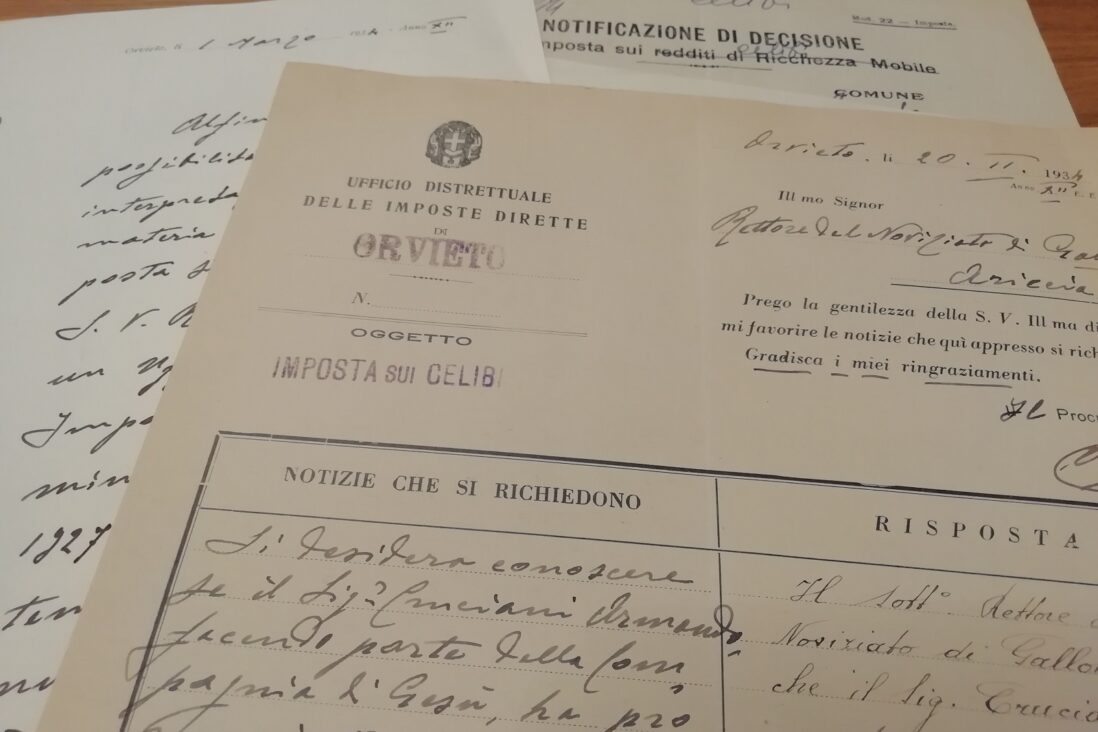 Orvieto, li 1 Marzo 1934 Anno XII
possibilità
interpreta
materia
posta s
S. V. R
un
Impo
min
1927
ten
celibi
Mod. 22 — Imposte
NOTIFICAZIONE DI DECISIONE
mposta sui redditi di Ricchezza Mobile
celibi
COMUNE
UFFICIO DISTRETTUALE
DELLE IMPOSTE DIRETTE
DI
ORVIETO
N.
OGGETTO
IMPOSTA SUI CELIBI
Orvieto, li 20. II. 1934
Anno XII E. F
Ill mo Signor
Rettore del Noviziato di
Ariccia
Prego la gentilezza della S. V. Ill ma di
mi favorire le notizie che quì appresso si rich
Gradisca i miei ringraziamenti.
Il Procu
NOTIZIE CHE SI RICHIEDONO
Si desidera conoscere
se il Sig.r Cruciani Armando,
facendo parte della Com
pagnia di Gesù, ha pro
RISPOSTA
Il sott° Rettore d
Noviziato di Gallo
che il Sig. Crucia